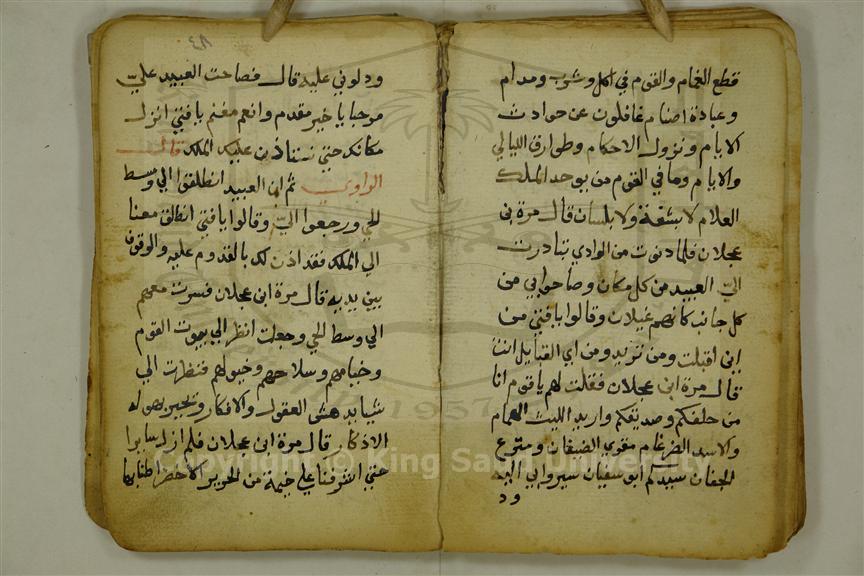 قطع الغمام والقوم في اكل وشرب ومدام
وعبادة اصنام غافلون عن حوادث
الايام ونزول الاحكام وطوارق الليالي
والايام وما في القوم من يوحد الملك
العلام لا بشفة ولا بلسان قال مرة بن
عجلان فلما دنوت من الوادي تبادرت
الي العبيد من كل مكان وصاحوا بي من
كل جانب كانهم غيلان وقالوا يا فتي من
اين اقبلت ومن تريد ومن اي القبايل انت
قال مرة ابن عجلان فقلت لهم يا قوم انا
من حلفكم وصديقكم واريد الليث الهمام
والاسد الضرغام مقوي الضيفان ومترع
الجفان سيدكم ابو سفيان سيروا بي اليه
ود
٤٨
ودلوني عليه قال فصاحت العبيد علي
مرحبا يا خير مقدم وانعم مغنم يا فتي انزل
مكانك حتي نستاذن عليك الملك قال
الراوي ثم ان العبيد انطلقوا الي وسط
الحي ورجعوا الي وقالوا يا فتي انطلق معنا
الي الملك فقد اذن لك بالقدوم عليه والوقوف
بين يديه قال مرة ابن عجلان فسرت معهم
الي وسط الحي وجعلت انظر الي بيوت القوم
وخيامهم وسلاحهم وخيولهم فنظرت الي
شيا يدهش العقول والافكار وتحير بهوله
الاذكار قال مرة ابن عجلان فلم ازل سايرا
حتي اشرفنا علي خيمة من الحرير الاخضر اطنابها
Copyright © King Saud University
1957